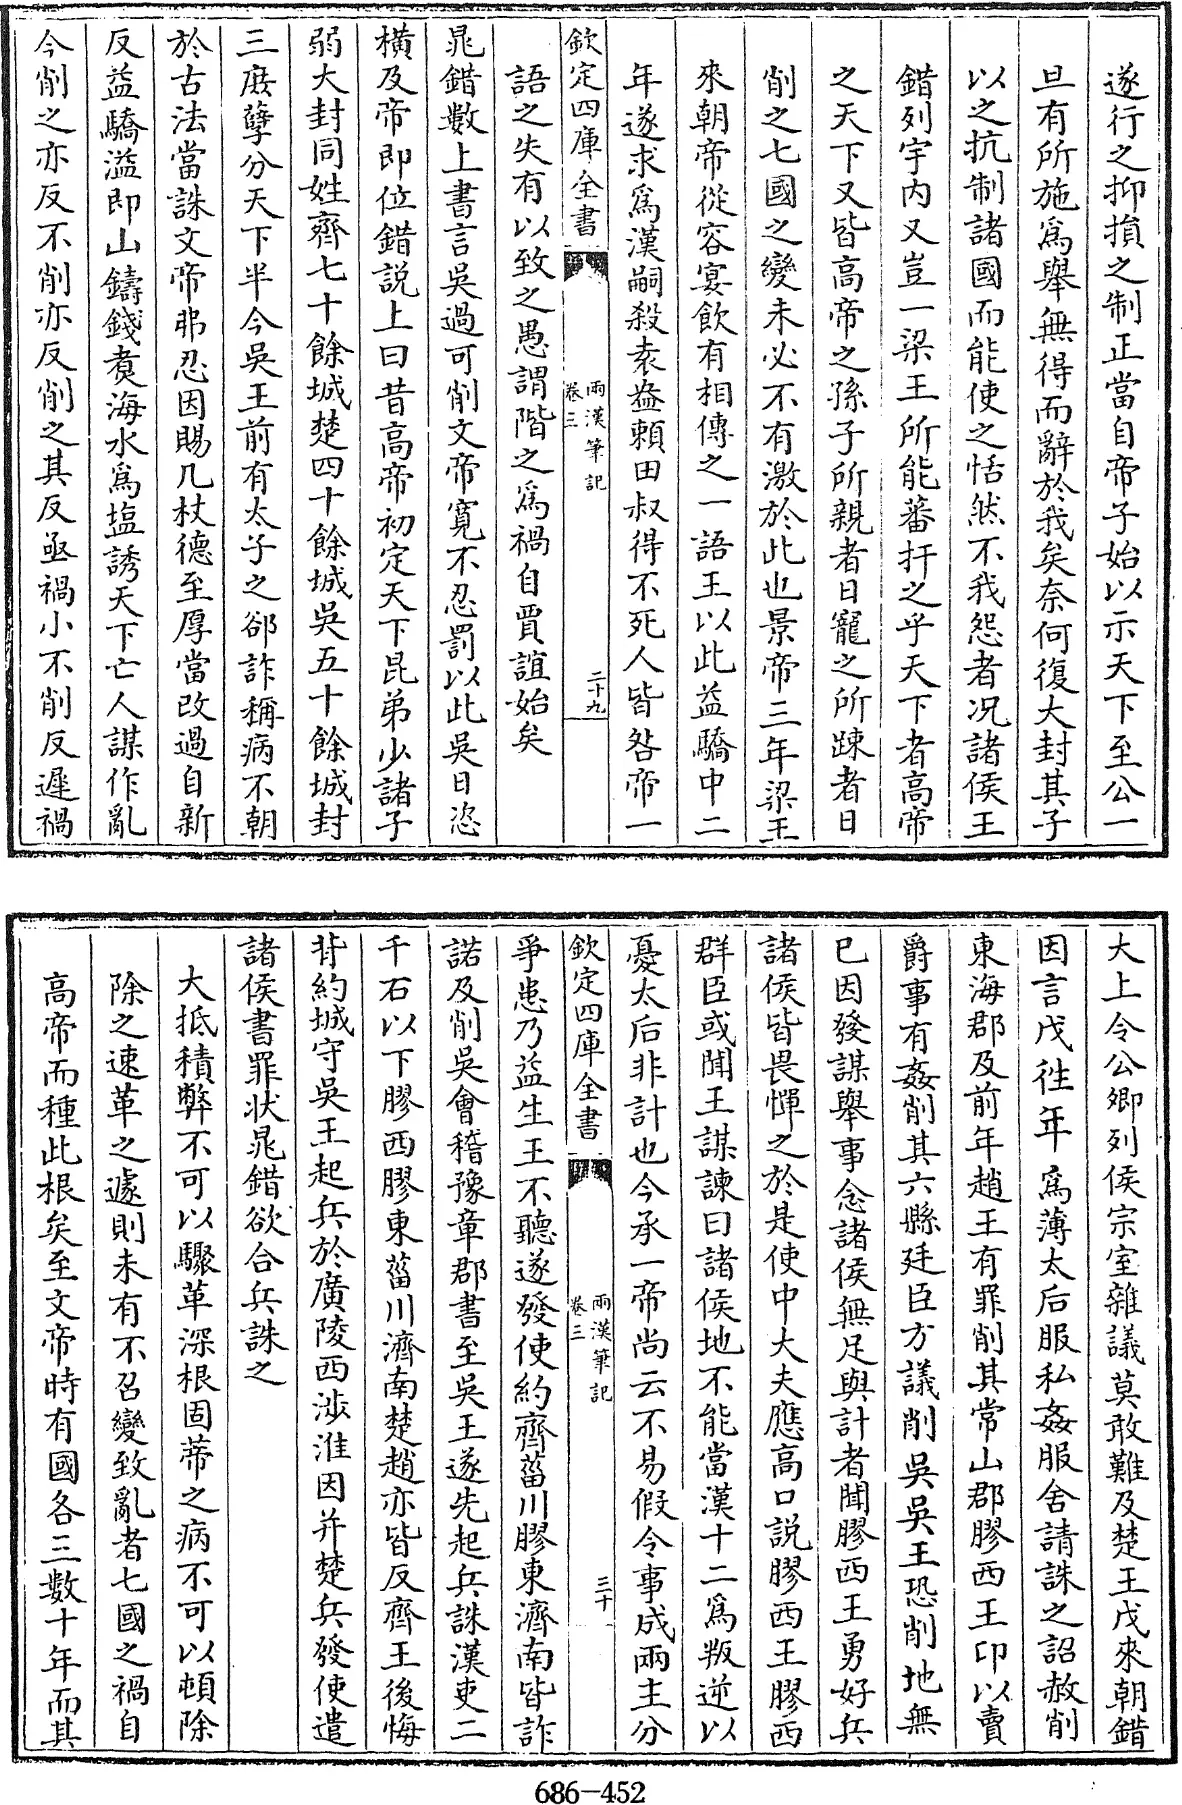 遂行之抑損之制正當自帝子始以示天下至公一
旦有所施為舉無得而辭於我矣奈何復大封其子
以之抗制諸國而能使之恬然不我怨者况諸侯王
錯列宇内又豈一梁王所能蕃扞之乎天下者高帝
之天下又皆高帝之孫子所親者日寵之所踈者日
削之七國之變未必不有激於此也景帝三年梁王
來朝帝從容宴飲有相傳之一語王以此益驕中二
年遂求為漢嗣殺袁盎賴田叔得不死人皆咎帝一
欽定四庫全書 兩漢筆記 卷三 二十九
語之失有以致之愚謂階之為禍自賈誼始矣
晁錯數上書言吳過可削文帝寛不忍罰以此吳日恣
横及帝即位錯説上曰昔高帝初定天下昆弟少諸子
弱大封同姓齊七十餘城楚四十餘城吳五十餘城封
三庶孽分天下半今吳王前有太子之郤詐稱病不朝
於古法當誅文帝弗忍因賜几杖德至厚當改過自新
反益驕溢即山鑄錢煑海水為塩誘天下亡人謀作亂
今削之亦反不削亦反削之其反亟禍小不削反遲禍
大上令公卿列侯宗室雜議莫敢難及楚王戊來朝錯
因言戊徃年為薄太后服私姦服舍請誅之詔赦削
東海郡及前年趙王有罪削其常山郡膠西王卬以賣
爵事有姦削其六縣廷臣方議削吳吳王恐削地無
已因發謀舉事念諸侯無足與計者聞膠西王勇好兵
諸侯皆畏憚之於是使中大夫應高口説膠西王膠西
群臣或聞王謀諫曰諸侯地不能當漢十二為叛逆以
憂太后非計也今承一帝尚云不易假令事成兩主分
欽定四庫全書 兩漢筆記 卷三 三十
爭患乃益生王不聽遂發使約齊菑川膠東濟南皆許
諾及削吳會稽豫章郡書至吳王遂先起兵誅漢吏二
千石以下膠西膠東菑川濟南楚趙亦皆反齊王後悔
背約城守吳王起兵於廣陵西渉淮因并楚兵發使遺
諸侯書罪状晁錯欲合兵誅之
大抵積弊不可以驟革深根固蒂之病不可以頓除
除之速革之遽則未有不召變致亂者七國之禍自
高帝而種此根矣至文帝時有國各三數十年而其
686-452